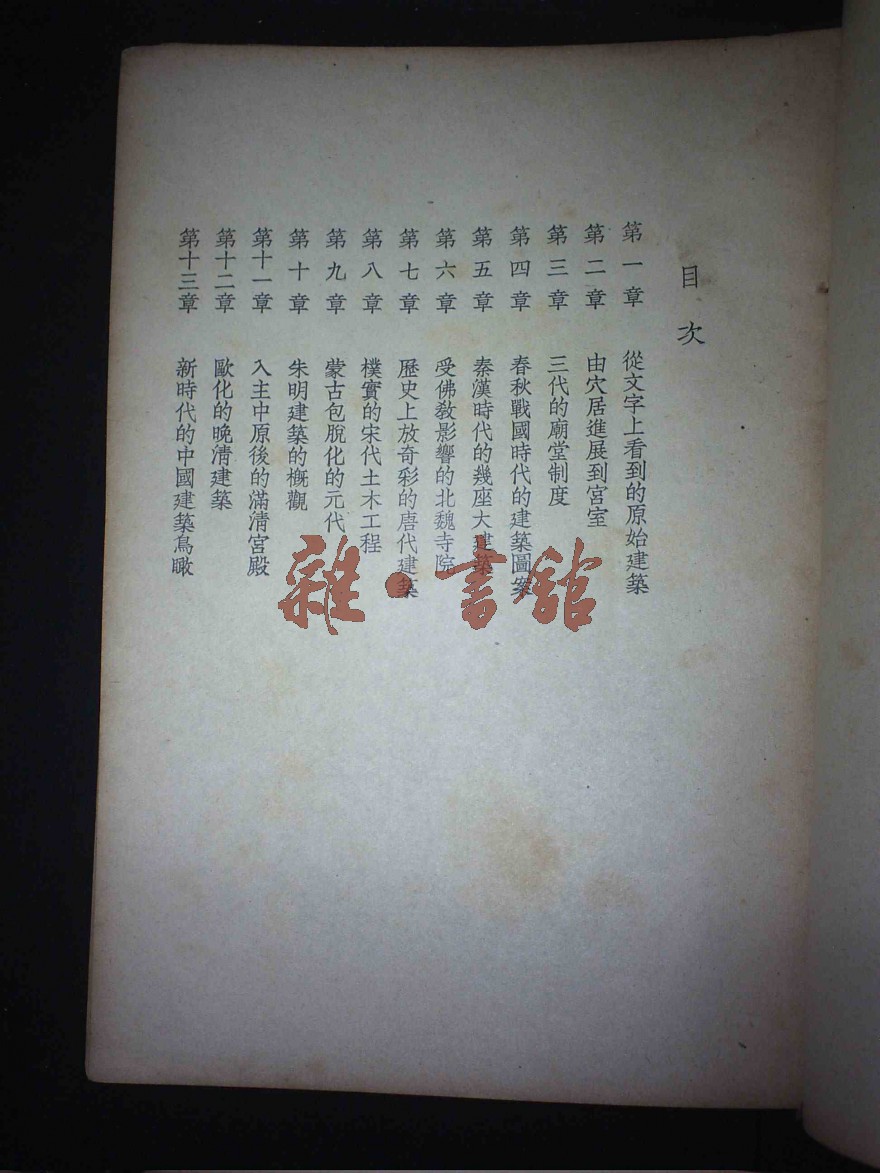 目次
第一章 從文字上看到的原始建築
第二章 由穴居進展到宮室
第三章 三代的廟堂制度
第四章 春秋戰國時代的建築圖案
第五章 秦漢時代的幾座大建築
第六章 受佛教影響的北魏寺院
第七章 歷史上放奇彩的唐代建築
第八章 樸實的宋代土木工程
第九章 蒙古包脫化的元代
第十章 朱明建築的概觀
第十一章 入主中原後的滿清宮殿
第十二章 歐化的晚清建築
第十三章 新時代的中國建築鳥瞰
雜·書館